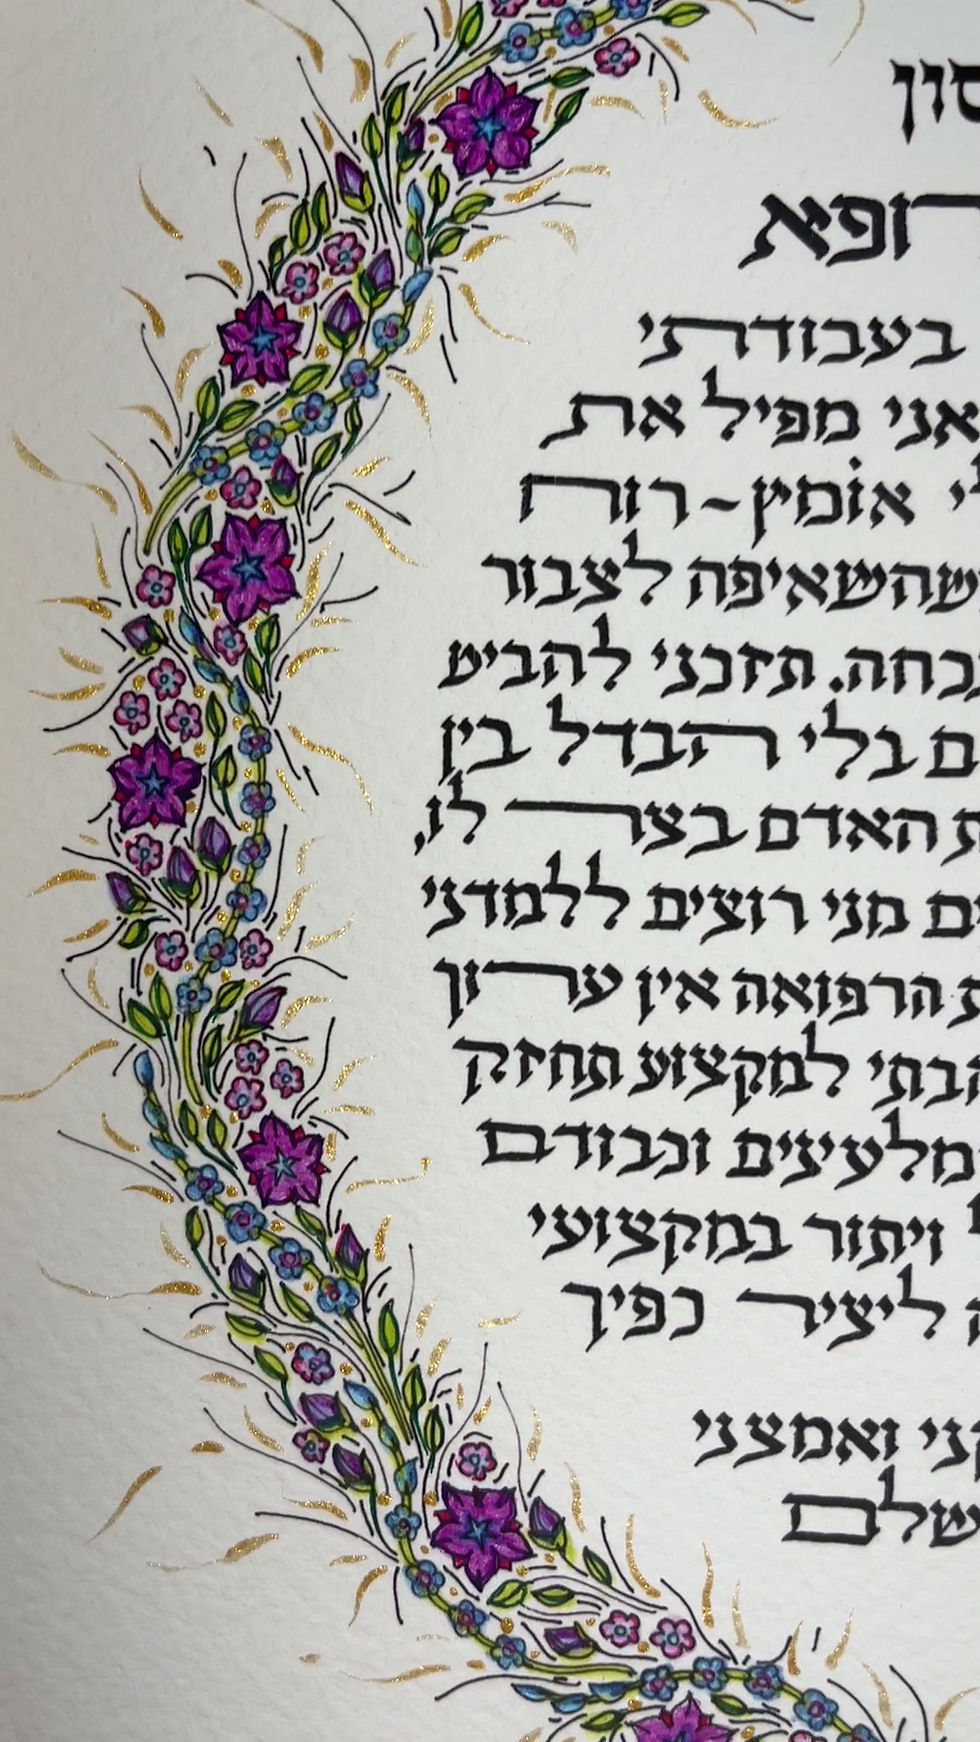 סון
רופא
בעבודתי
אני מפיל את
י אוֹמץ-רוח
שהשאיפה לצבור
בחה. תזכני להביט
ם בלי הבדל בין
ת האדם בצר לו,
ם מני רוצים ללמדני
ת הרפואה אין ערוך
הבתי למקצוע תחזק
מלעיזים וכבודם
ויתור במקצועי
ליציר כפיך
קני ואמצני
שלם